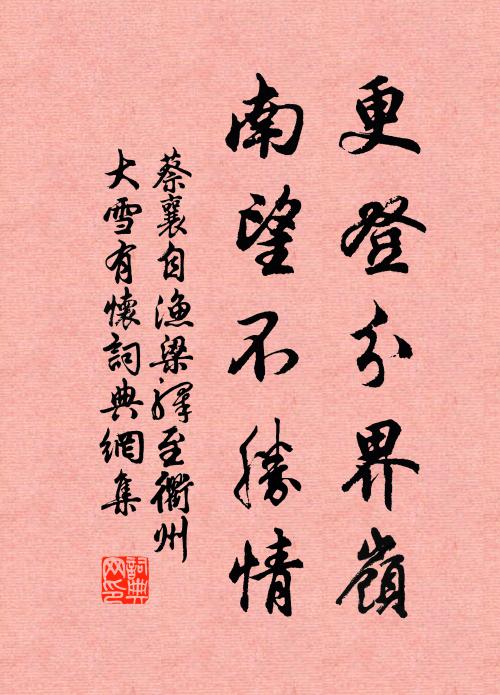 更登分界嶺
南望不勝情
蔡襄自漁梁驛至衢州
大雪有懷詞典網集
詞典
网印